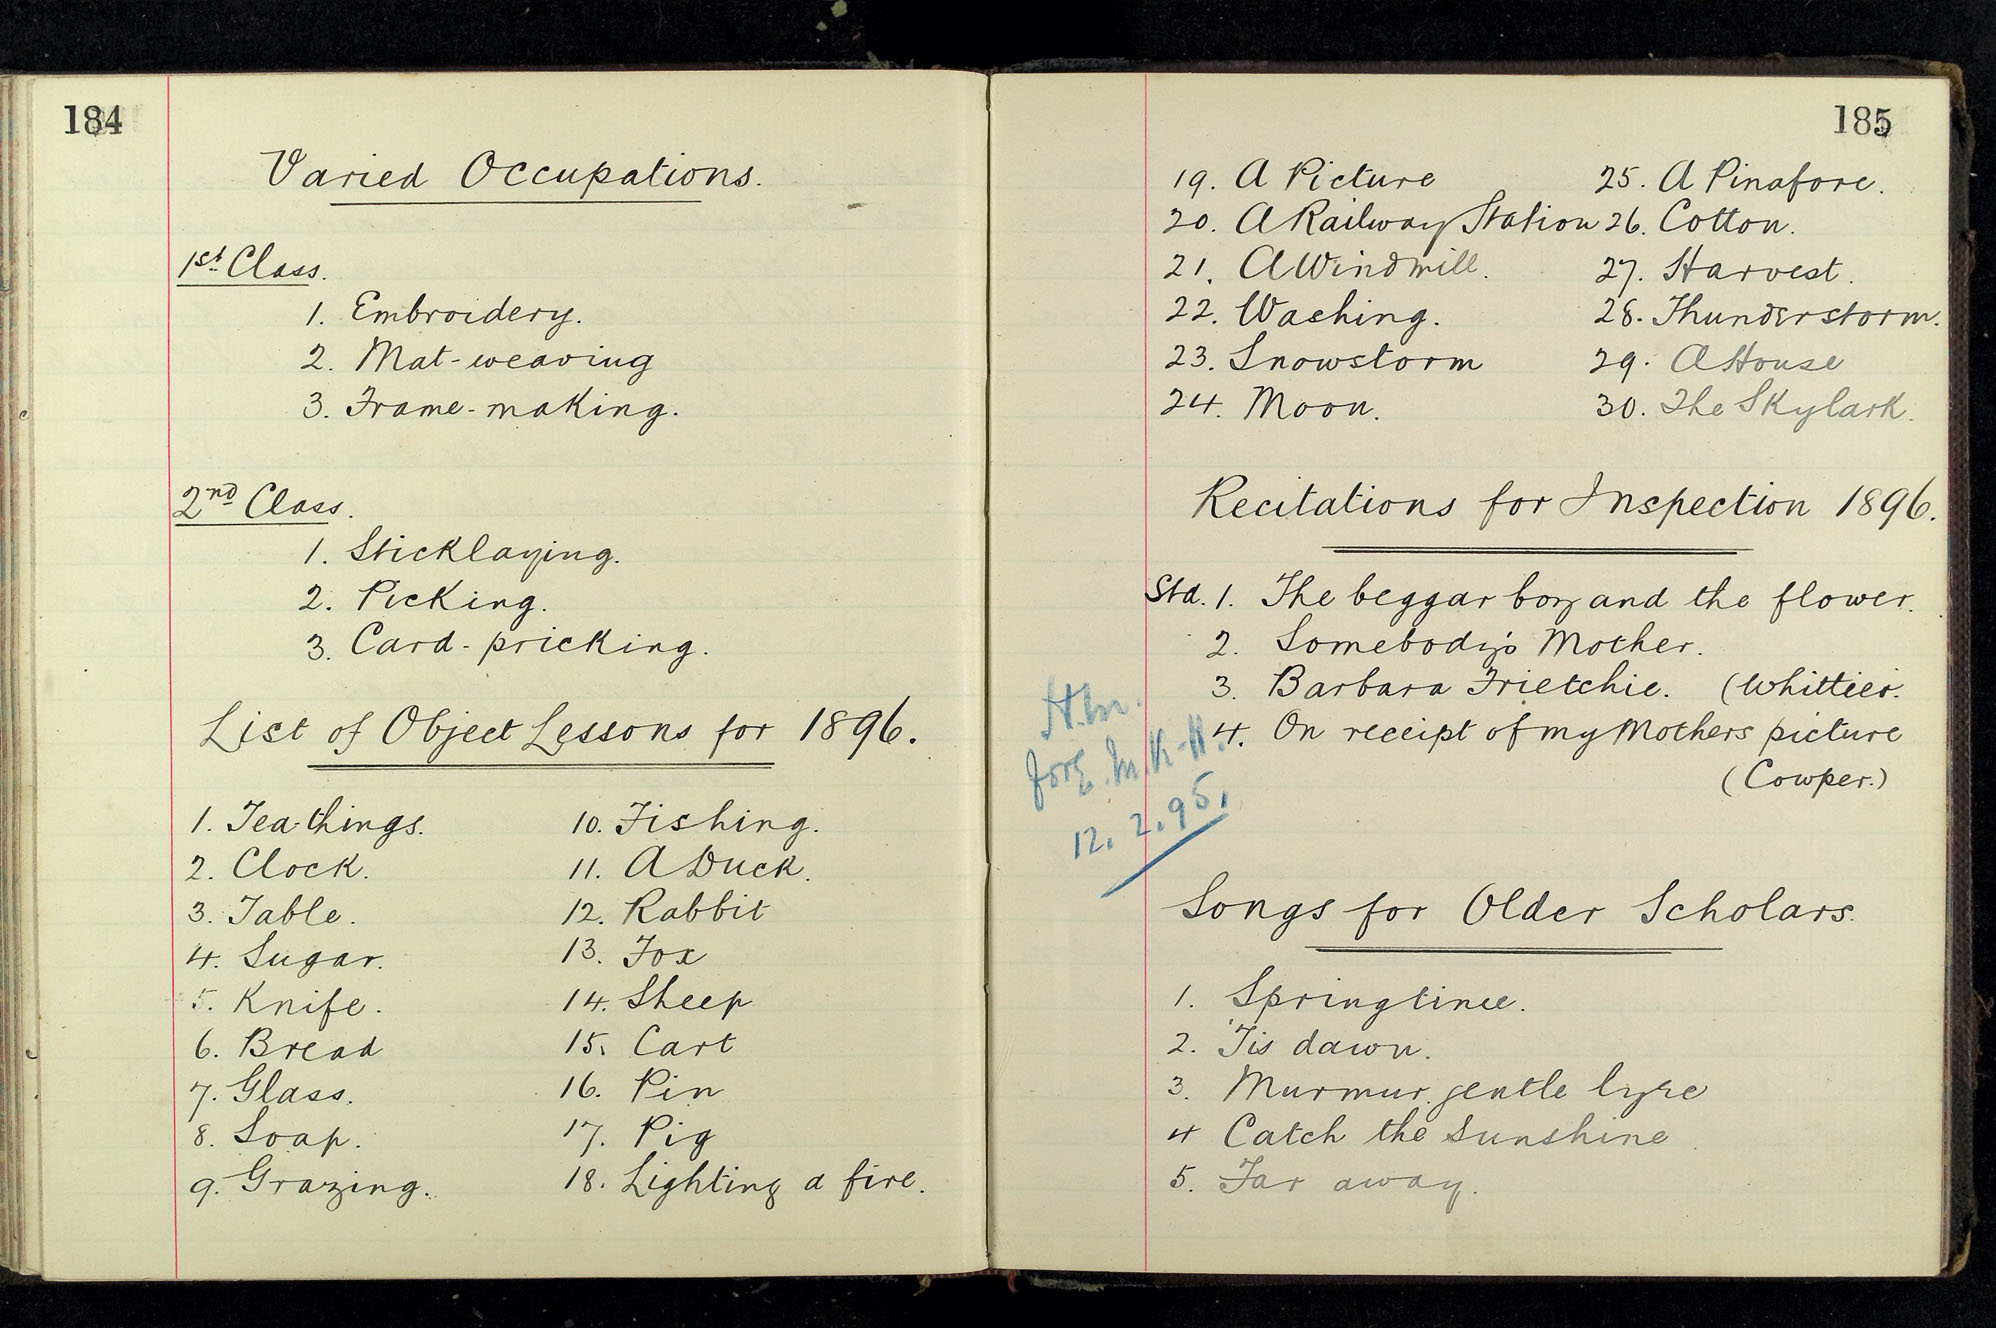 184
Varied Occupations.
1st Class.
1. Embroidery.
2. Mat-weaving
3. Frame-making.
2nd Class.
1. Sticklaying.
2. Picking.
3. Card-pricking.
List of Object Lessons for 1896.
1. Tea-things.
2. Clock.
3. Table.
4. Sugar.
5. Knife.
6. Bread
7. Glass.
8. Soap.
9. Grazing.
10. Fishing.
11. A Duck.
12. Rabbit
13. Fox
14. Sheep
15. Cart
16. Pin
17. Pig
18. Lighting a fire.
185
19. A Picture
20. A Railway Station
21. A Windmill.
22. Washing.
23. Snowstorm
24. Moon.
25. A Pinafore.
26. Cotton.
27. Harvest.
28. Thunderstorm.
29. A House
30. The Skylark.
Recitations for Inspection 1896.
Std. 1. The beggar boy and the flower.
2. Somebody's Mother.
3. Barbara Frietchie. (Whittier.
4. On receipt of my Mothers picture
(Cowper.)
12.2.95.
Songs for Older Scholars.
1. Springtime.
2. 'Tis dawn.
3. Murmur gentle lyre
4 Catch the Sunshine
5. Far away.